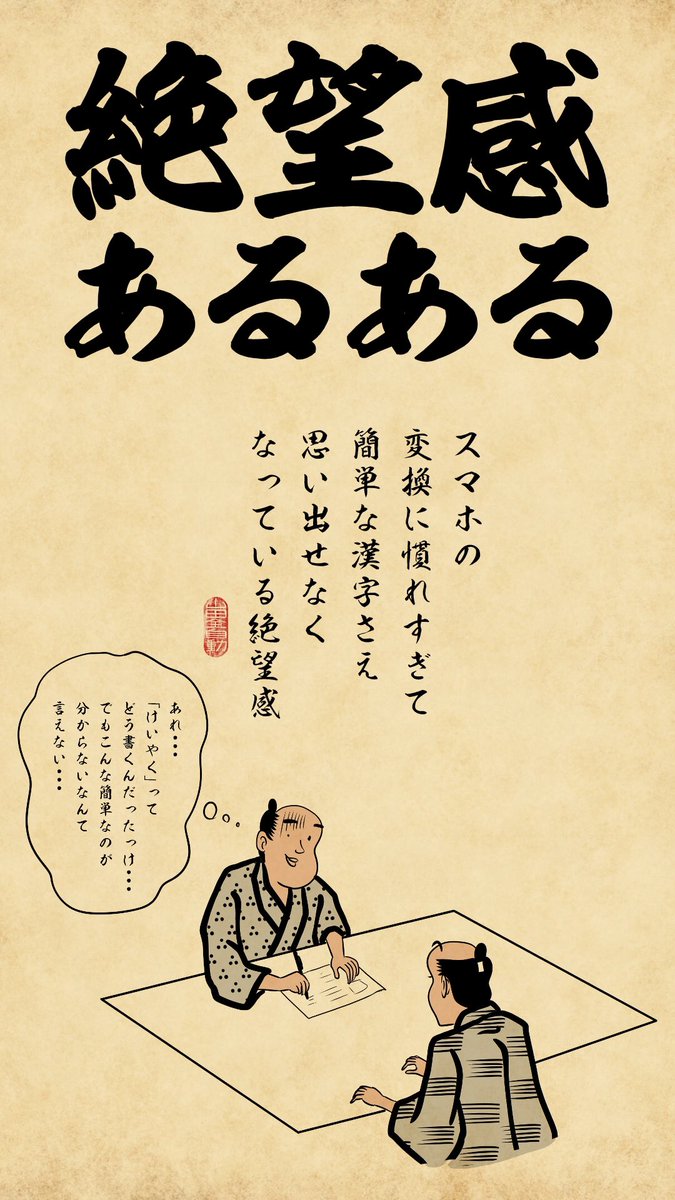 絶望感
あるある
スマホの
変換に慣れすぎて
簡単な漢字さえ
思い出せなく
なっている絶望感
あれ・・・
「けいやく」って
どう書くんだったっけ・・・
でもこんな簡単なのが
分からないなんて
言えない・・・